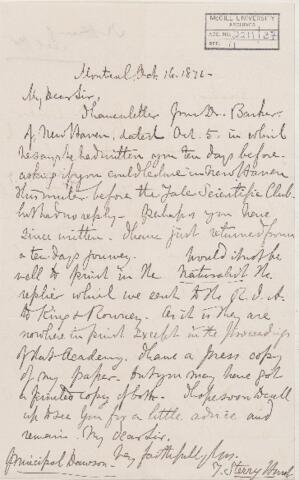 McGILL UNIVERSITY
ARCHIVES
ACC. NO. 2211/27
REF.
Montreal, Oct. 16. 1872 -
My dear Sir,
I have a letter from Dr. Barker
of New Haven, dated Oct. 5. in which
he says he had written you ten days before
asking if you could lecture in New Haven
this winter before the Yale Scientific Club
but had no reply - Perhaps you have
since written. I have just returned from
a ten days journey. Would it not be
well to print in the Naturalist the
replies which we sent to the R. I. A.
to King & Rowney. As it is they are
nowhere in print except in the proceedings
of that Academy. I have a press copy
of my paper. but you may have got
a printed copy of both. I hope soon to call
up to see you for a little advice and
remain My dear Sir.
Very faithfully Yours.
Principal Dawson - T. Sterry Hunt